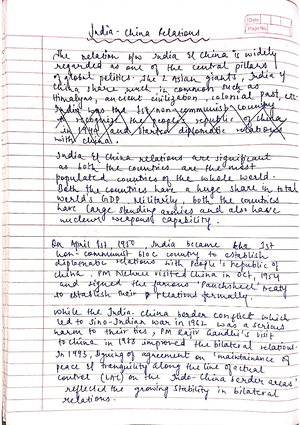 Date
Page No.
India - China Relations
The relation b/w India & China is widely
regarded as one of the central pillars
of global politics. The 2 Asian giants, India &
China share much in common such as
Himalayas, ancient civilization, colonial past, etc.
India was the 1st non-communist country
to recognize the people's republic of china
in 1949 and started diplomatic relations
with china.
India & China relations are significant
as both the countries are the most
populated countries of the whole world.
Both the countries have a huge share in total
world's GDP. Militarily, both the countries
have large standing armies and also have
nuclear weapons capability.
On April 1st, 1950, India became the 1st
non-communist bloc country to establish
diplomatic relations with People's republic of
china. PM Nehru visited china in Oct, 1954
and signed the famous 'Panchsheel' treaty
to establish their relations formally.
While the India-china border conflict which
led to Sino-Indian war in 1962 was a serious
harm to their ties, PM Rajiv Gandhi's visit
to China in 1988 improved the bilateral relations.
In 1993, signing of agreement on 'maintainance of
peace & tranquility along the line of actual
control (LAC) on the Indo-China border areas'
reflected the growing stability in bilateral
relations.